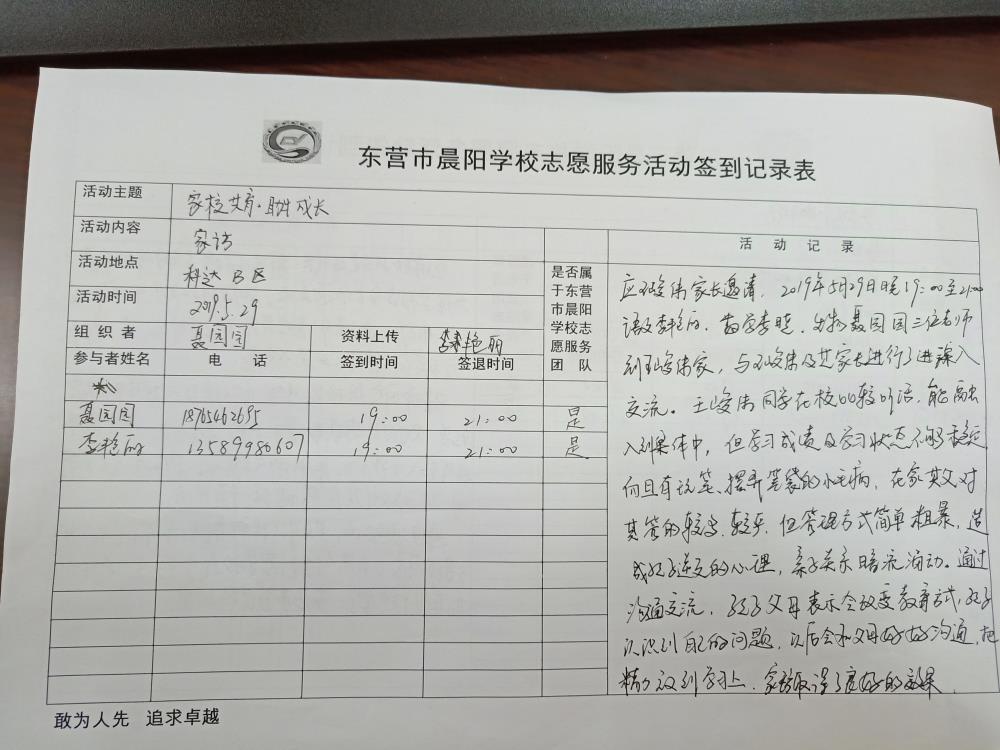 东营市晨阳学校志愿服务活动签到记录表
活动主题 家校共育·助生成长
活动内容 家访
活动地点 科达B区
活动时间 2019.5.29
组织者 聂园园 资料上传 李艳丽
是否属于东营市晨阳学校志愿服务团队
参与者姓名 电话 签到时间 签退时间
聂园园 18765462695 19:00 21:00 是
李艳丽 13589998607 19:00 21:00 是
活动记录
应王峻伟家长邀请，2019年5月29日晚19:00至21:00
语文李艳丽、数学李晓、生物聂园园三位老师
到王峻伟家，与王峻伟及其家长进行了进深入
交流。王峻伟同学在校比较听话，能融
入到集体中，但学习成绩及学习状态不够稳定
而且有玩笔、摆弄笔袋的小毛病，在家其父对
其管的较多、较严，但管理方式简单粗暴，造
成孩子逆反的心理，亲子关系暗流涌动。通过
沟通交流，孩子父母表示会改变教育方式，孩子
认识到自己的问题，以后会和父母好好沟通，把
精力放到学习上，家访取得了良好的效果。
敢为人先 追求卓越